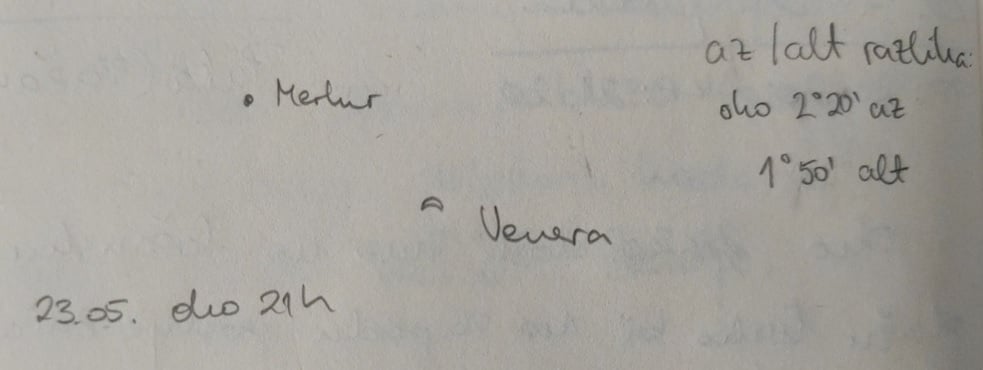 az/alt razlika:
• Merkur
oko 2°20' az
1°50' alt
Venera
23.05. oko 21h